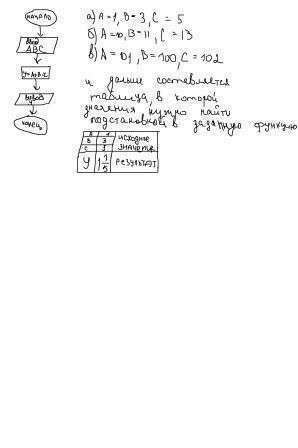 НАЧАЛО
Ввод
ABC
Вывод
КОНЕЦ
а) A=1, B=3, C=5
б) A=10, B=11, C=13
в) A=101, B=100, C=102
и дальше составляется
таблица, в которой
значения нужно найти
подстановкой в заданную функцию
A 1
B 3 ИСХОДНЫЕ
C 5 ЗНАЧЕНИЯ
У РЕЗУЛЬТАТ